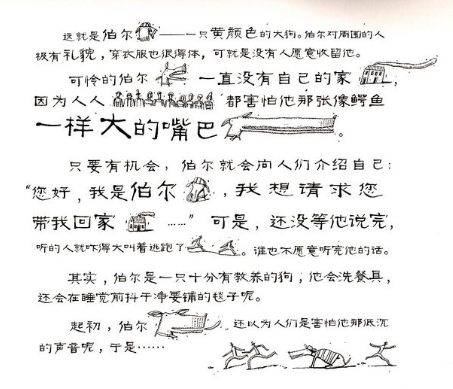 这就是伯尔——一只黄颜色的大狗。伯尔对周围的人
极有礼貌，穿衣服也很得体，可就是没有人愿意收留他。
可怜的伯尔 一直没有自己的家，
因为人人 都害怕他那张像鳄鱼
一样大的嘴巴。
只要有机会，伯尔就会向人们介绍自己：
“您好，我是伯尔，我想请求您
带我回家……”可是，还没等他说完，
听的人就吓得大叫着逃跑了。谁也不愿意听完他的话。
其实，伯尔是一只十分有教养的狗，他会洗餐具，
还会在睡觉前抖干净要铺的毯子呢。
起初，伯尔 还以为人们是害怕他那低沉
的声音呢，于是……